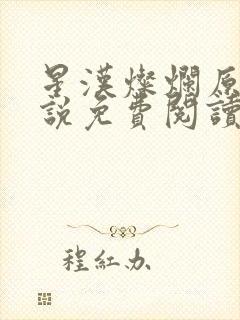 星漢燦爛原
說免費閱讀
程紅办